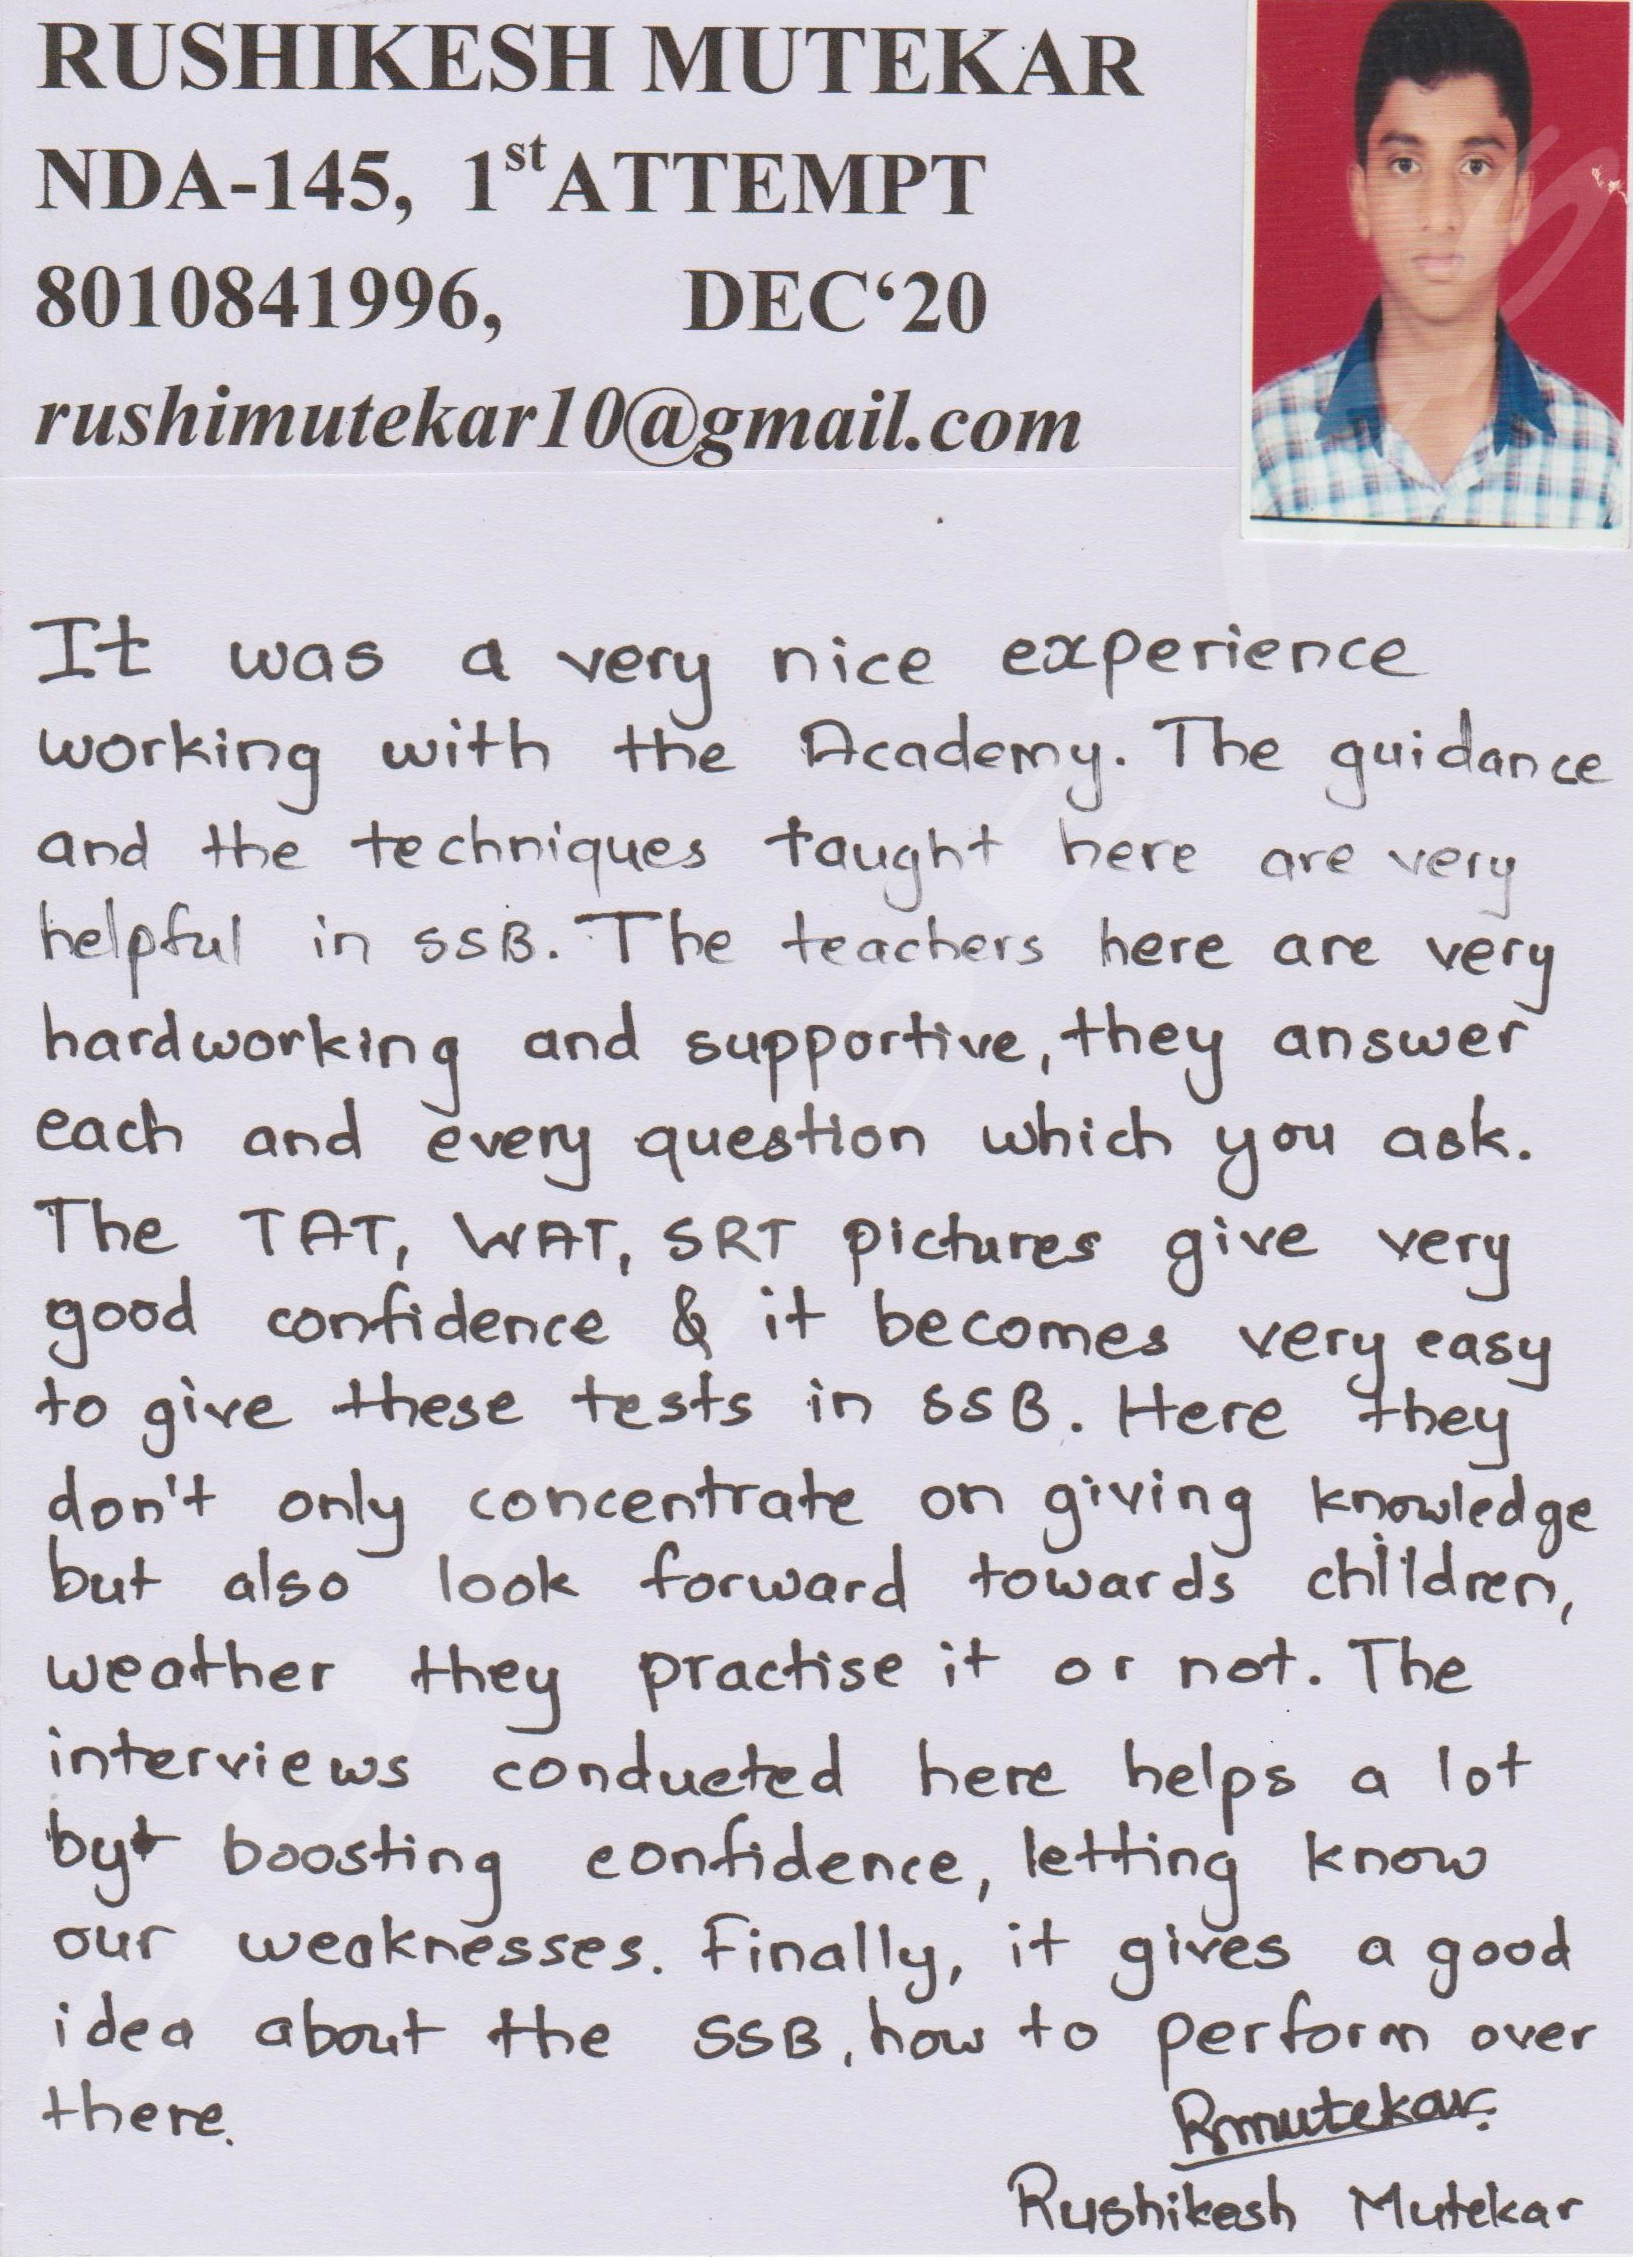 RUSHIKESH MUTEKAR
NDA-145, 1st ATTEMPT
8010841996, DEC‘20
rushimutekar10@gmail.com
It was a very nice experience
working with the Academy. The guidance
and the techniques taught here are very
helpful in SSB. The teachers here are very
hardworking and supportive, they answer
each and every question which you ask.
The TAT, WAT, SRT pictures give very
good confidence & it becomes very easy
to give these tests in SSB. Here they
don't only concentrate on giving knowledge
but also look forward towards children,
weather they practise it or not. The
interviews conducted here helps a lot
by boosting confidence, letting know
our weaknesses. Finally, it gives a good
idea about the SSB, how to perform over
there.
Rmutekar
Rushikesh Mutekar